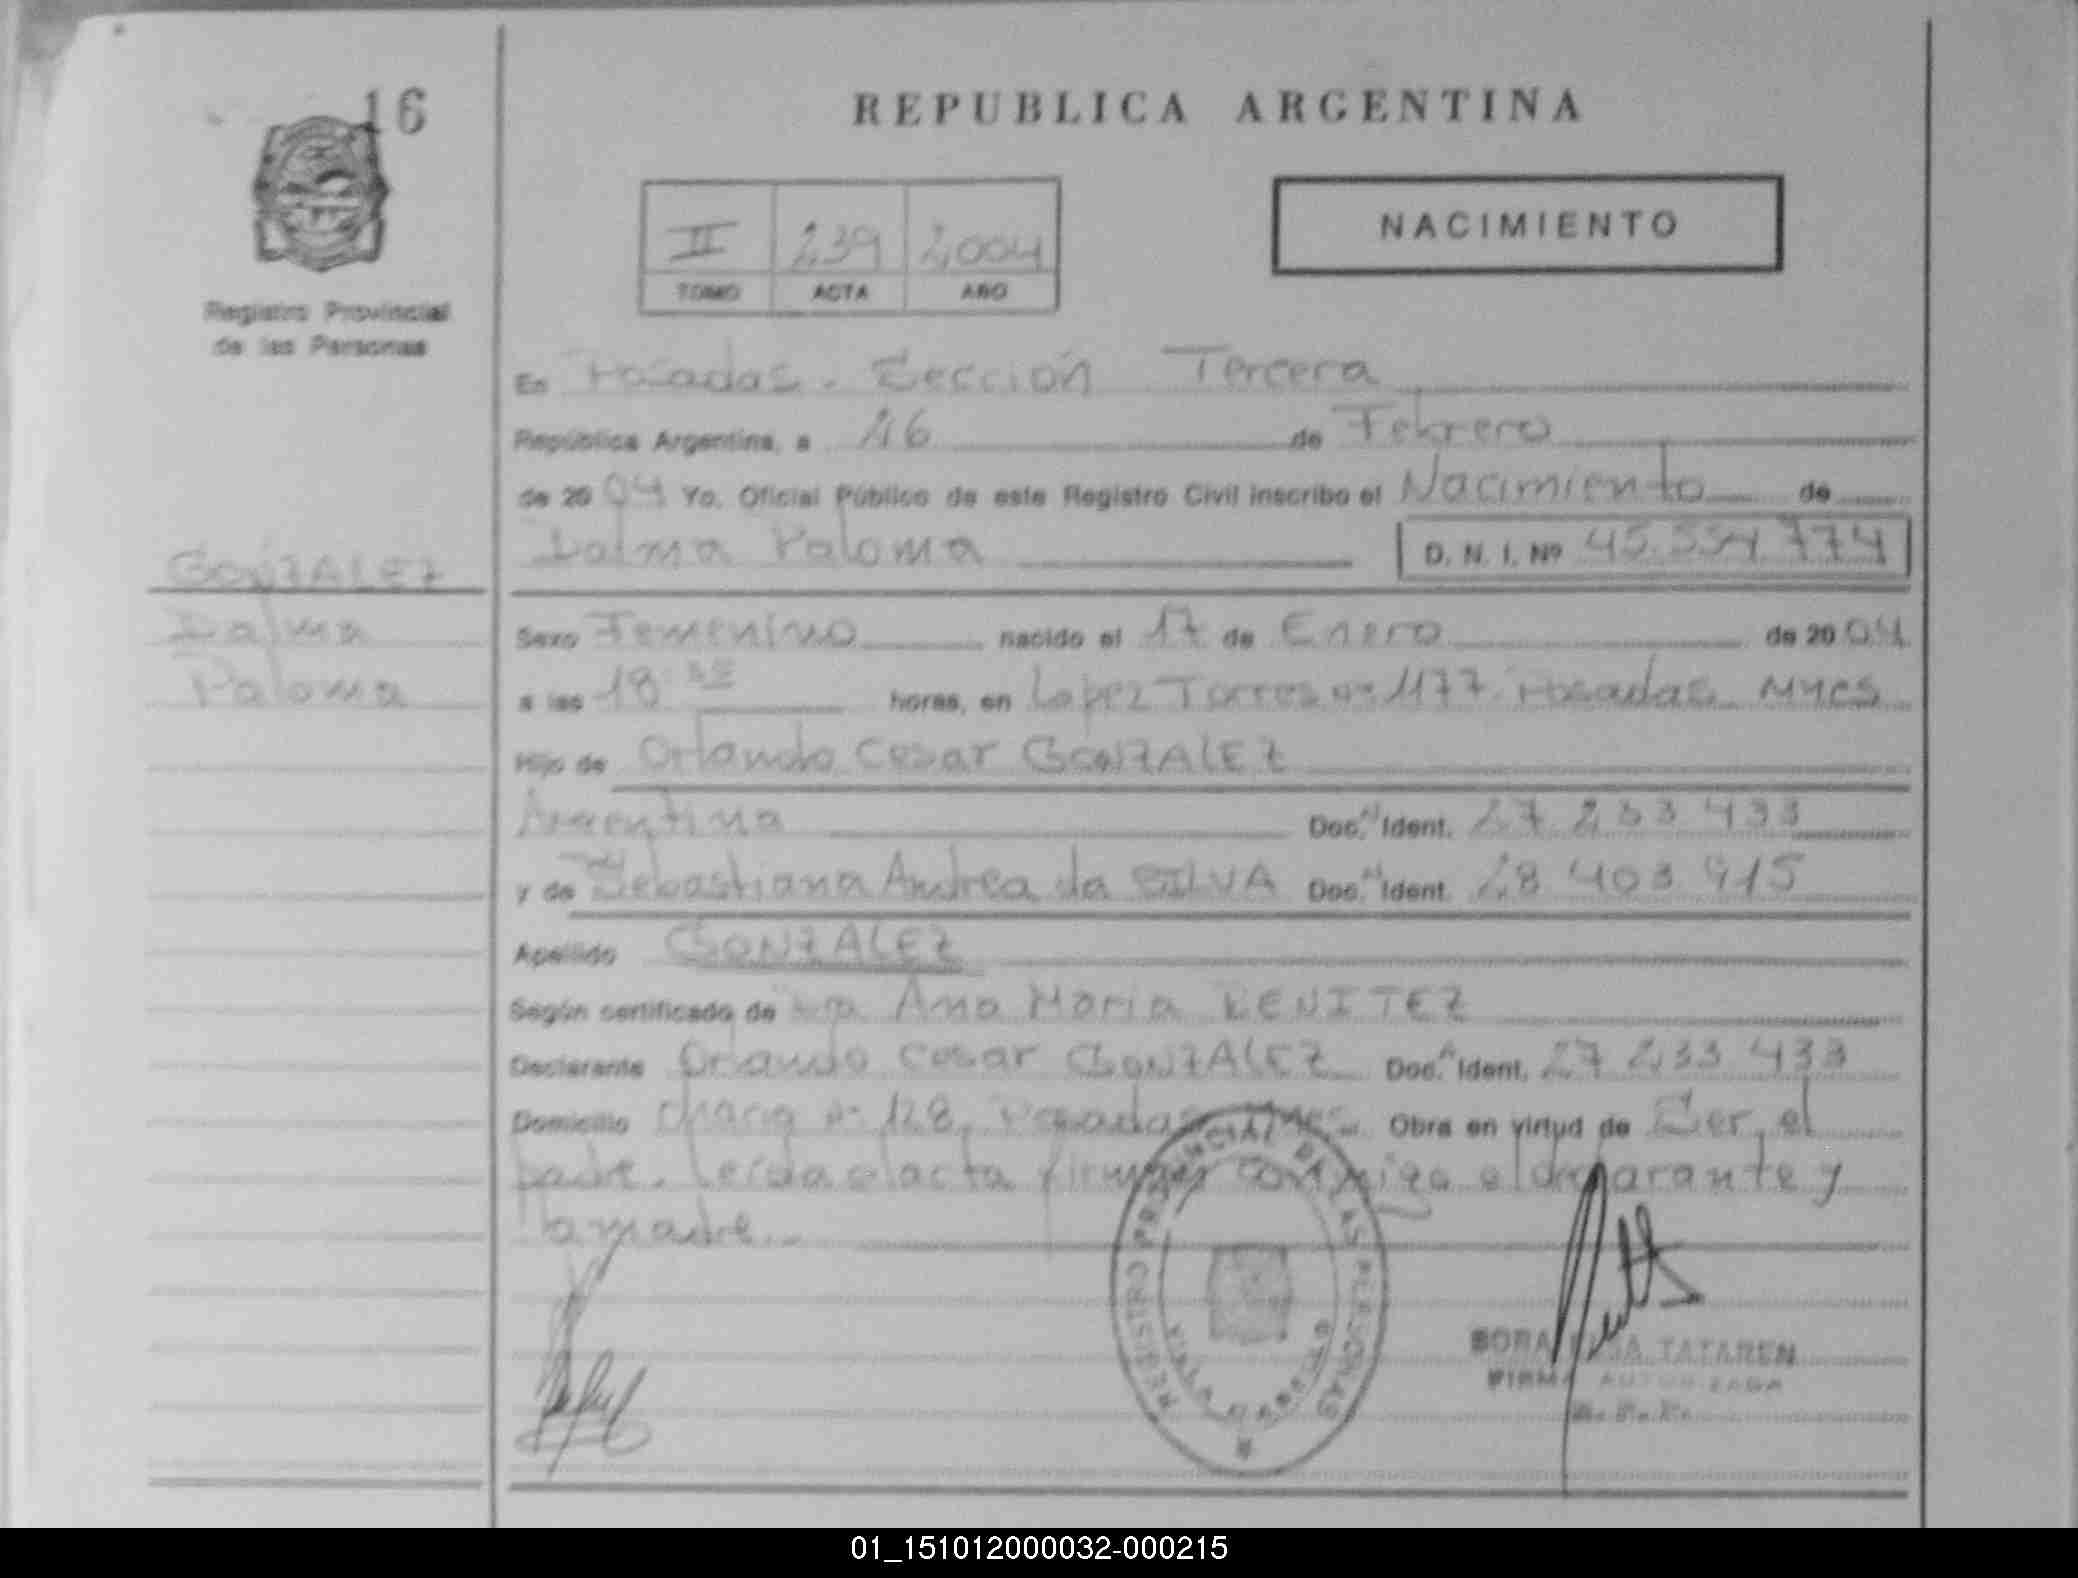 16
REPUBLICA ARGENTINA
NACIMIENTO
II 239 2004
TOMO ACTA AÑO
Registro Provincial
de las Personas
En Posadas. Sección Tercera
República Argentina, a 26 de Febrero
de 2004 Yo, Oficial Público de este Registro Civil inscribo el Nacimiento de
Dalma Paloma D. N. I. Nº 45.554.774
GONZALEZ
Dalma
Paloma
Sexo Femenino nacido el 17 de Enero de 2004
a las 18 horas, en Lopez Torres nº 1177. Posadas Mnes
Hijo de Orlando Cesar GONZALEZ
Argentina Doc. Ident. 27 233 433
y de Sebastiana Andrea da SILVA Doc. Ident. 28 403 915
Apellido GONZALEZ
Según certificado de Ana Maria BENITEZ
Declarante Orlando Cesar GONZALEZ Doc. Ident. 27 233 433
Domicilio nº 128, Posadas Mnes. Obra en virtud de Ser el
padre. Leida el acta firman conmigo el declarante y
la madre.
REGISTRO PROVINCIAL DE LAS PERSONAS
TATAREN
FIRMA AUTORIZADA
01_151012000032-000215